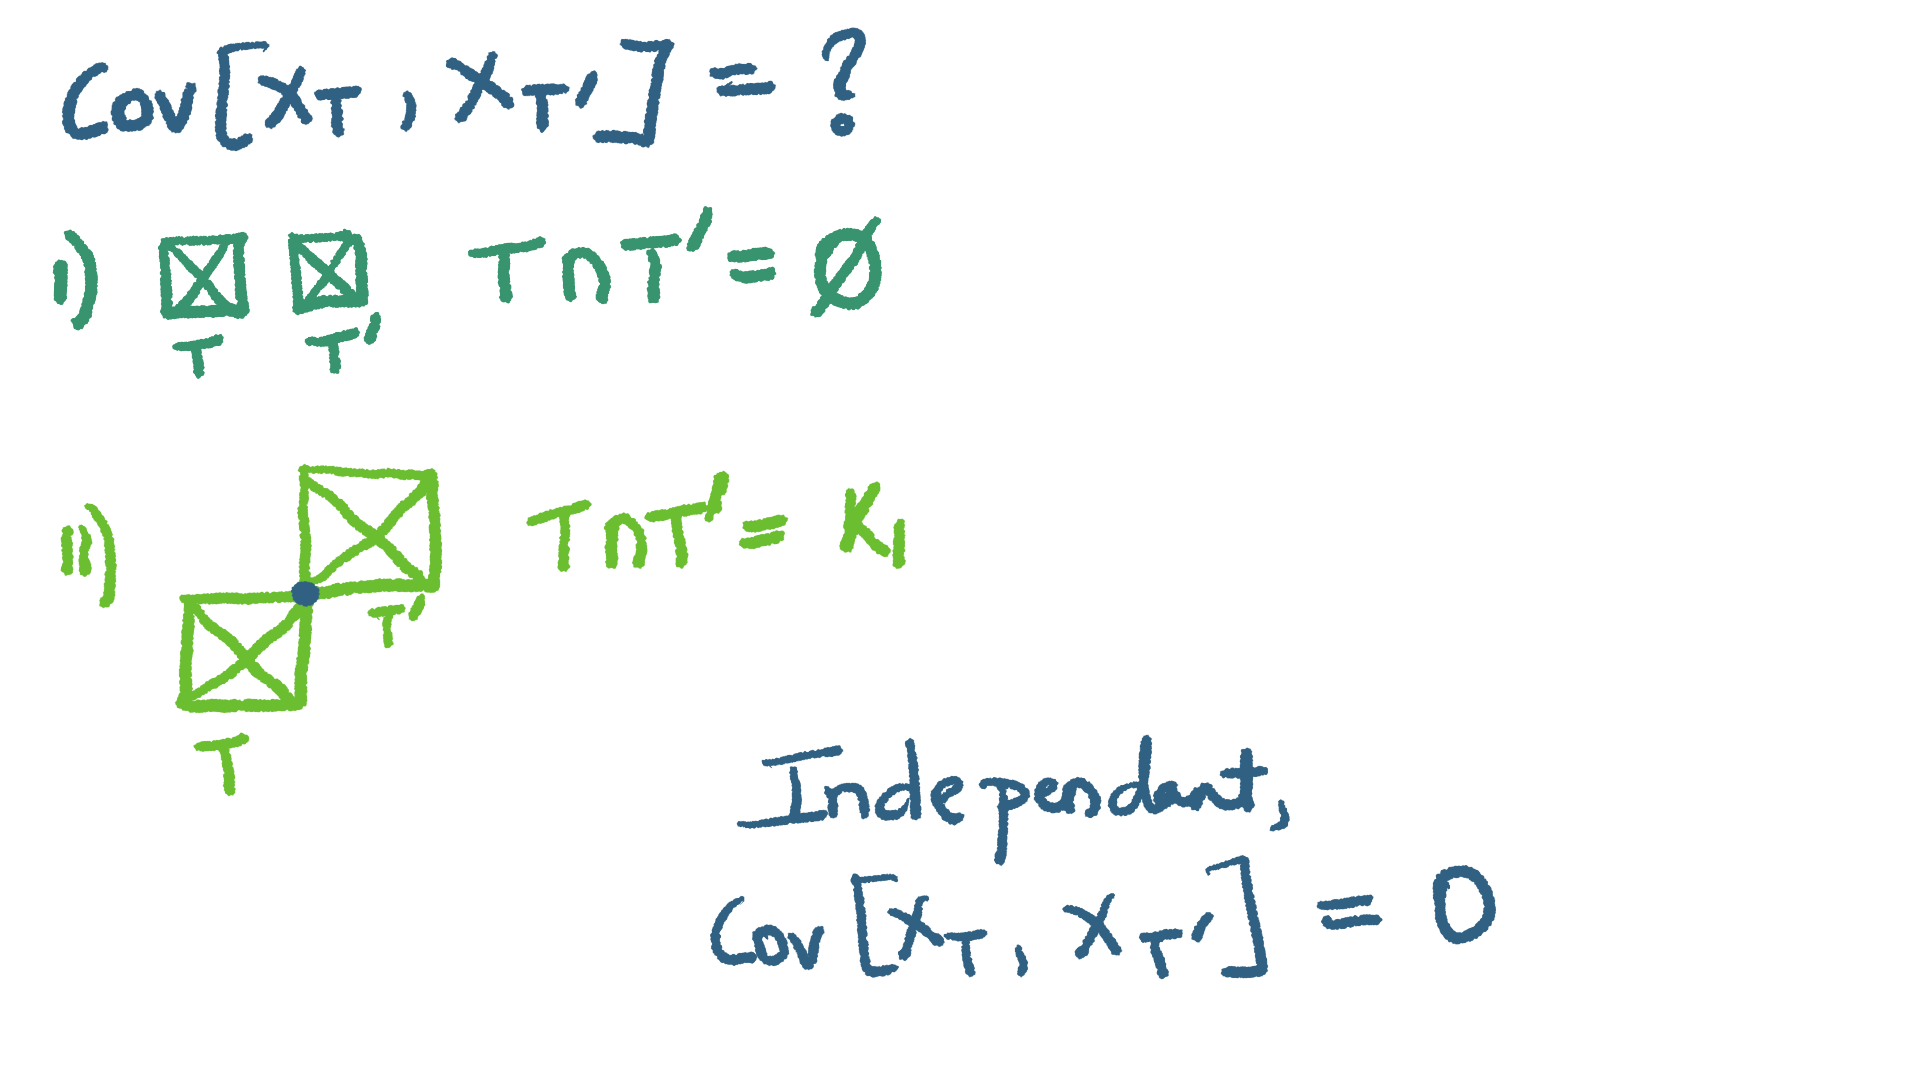 Cov[X_T, X_T'] = ?
I) T∩T' = Ø
T T'
II) T∩T' = K₁
T'
T
Independant,
Cov[X_T, X_T'] = 0